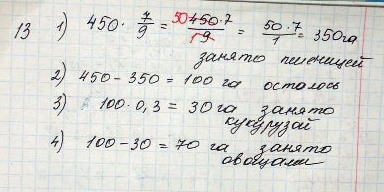 13 1) 450 · 7/9 = 50 450·7/9 = 50·7/1 = 350 га
занято пшеницей
2) 450 – 350 = 100 га осталось
3) 100 · 0,3 = 30 га занято
кукурузай
4) 100 – 30 = 70 га занято
овощами